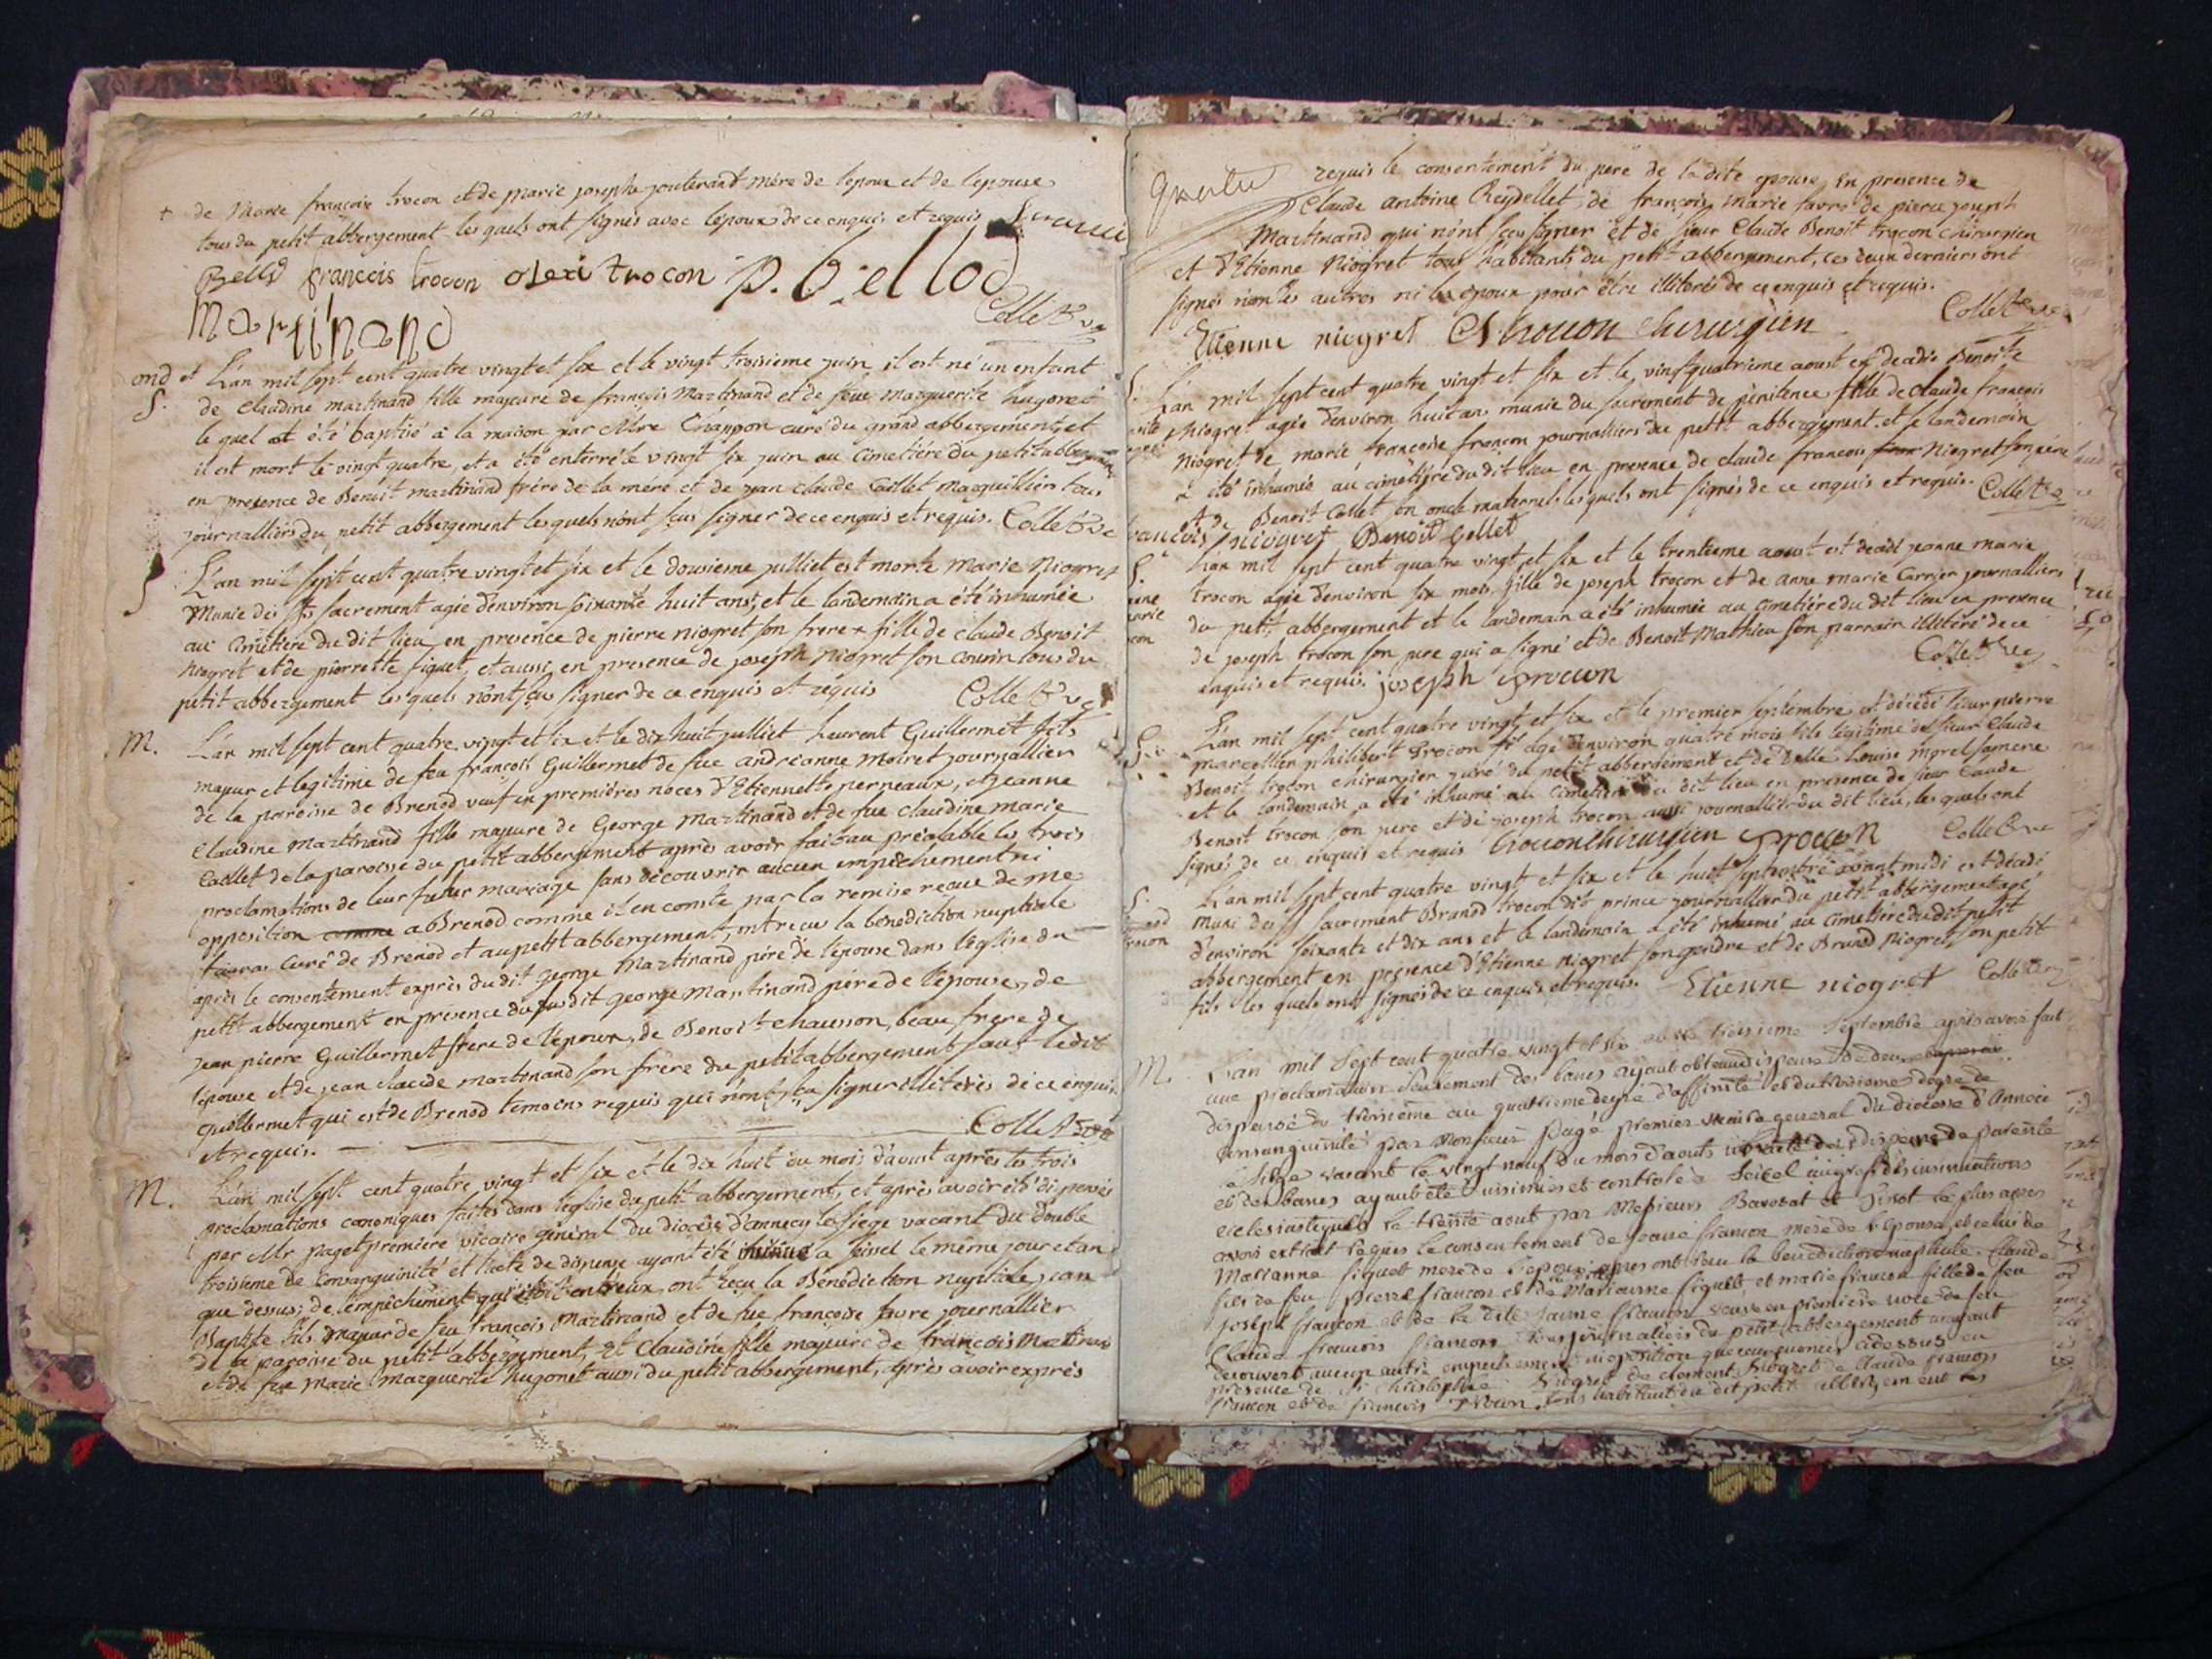 + de Marie françoise trocon et de marie josephe jouterand mére de lepoux et de lepouse
tous du petit abbergement les quels ont signés avec lépoux de ce enquis et requis
Bellod françois trocon alexi trocon p. bellod
Martinand Collet Vre
ond et L'an mil sept cent quatre vingt et six et le vingt troisieme juin il est né un enfant
S. de Claudine martinand fille majeure de françois Martinand et de feue Marguerite hugonet
le quel at été baptisé à la maison par Mre Chappon curé du grand abbergement, et
il est mort le vingt quatre, et a été enterré le vingt six juin au cimetiére du petit abbergement
en presence de Benoit martinand frére de la mére et de jean claude Caillet Marguillier tous
journalliers du petit abbergement les quels n'ont sçus signer de ce enquis et requis. Collet Vre
S L'an mil sept cent quatre vingt et six et le dousieme julliet est morte Marie Niogret
Munie des sts sacrement agée d'environ soixante huit ans, et le landemain a été inhumée
au Cimetiére du dit lieu en presence de pierre niogret son frere + fille de claude Benoit
niogret et de pierrette figuet, et aussi en presence de joseph Niogret son cousin tous du
petit abbergement les quels n'ont sçu signer de ce enquis et requis Collet Vre
M. L'an mil sept cent quatre vingt et six et le dix huit julliet Laurent Guillermet fils
majeur et legitime de feu françois Guillermet de fue andréanne Moiret journallier
de la paroisse de Brenod veuf en premiéres noces d'Etiennette perneaux, et jeanne
Claudine Martinand fille majeure de George Martinand et de fue Claudine marie
Caillet de la paroisse du petit abbergement après avoir fait au préalable les trois
proclamations de leur futur mariage sans découvrir aucun empêchement ni
opposition comme a Brenod comme il en conste par la remise reçue de me
curé de Brenod et au petit abbergement, ont reçu la bénédiction nuptiale
après le consentement exprès du dit george Martinand pére de l'épouse dans l'église du
petit abbergement en présence du susdit george Martinand pére de l'épouse, de
jean pierre Guillermet frere de l'époux, de Benoit chausson, beau frere de
l'épouse et de jean claude martinand son frère du petit abbergement sauf le dit
guillermet qui est de Brenod temoins requis qui n'ont sçu signer illitérés de ce enquis
et requis. Collet Vre
M. L'an mil sept cent quatre vingt et six et le dix huit du mois d'aoust après les trois
proclamations canoniques faites dans l'église du petit abbergement, et après avoir été dispensés
par Mr paget premiere vicaire général du diocèse d'annecy le siege vacant du double
troisieme de Consanguinité et l'acte de dispense ayant été insinué a seissel le même jour et an
que dessus; de l'empêchement qui étoit entr'eux ont reçu la Bénédiction nuptiale, jean
Baptiste fils majeur de feu françois Martinand et de fue françoise favre journallier
de la paroisse du petit abbergement, Et Claudine fille majeure de françois Martinand
et de feu Marie Marguerite hugonet aussi du petit abbergement, après avoir exprès
requis le consentement du pere de la dite epouse, En presence de
Claude antoine Reydellet, de françois Marie favre de pierre joseph
Martinand qui n'ont sçus signer et de sieur Claude Benoit trocon chirurgien
et d'Etienne Niogret tous habitants du petit abbergement, ces deux derniers ont
signés non les autres ni les époux pour être illiterés de ce enquis et requis.
Etienne niogret C trocon chirurgien Collet Vre
S. L'an mil sept cent quatre vingt et six et le vingt quatrieme aoust est decedée Benoite
Niogret agée d'environ huit ans munie du sacrement de pénitence fille de claude françois
Niogret de marie françoise françon journalliers du petit abbergement. et le landemain
a été inhumée au cimetiére du dit lieu en presence de claude francois Niogret son pére
et de Benoit Collet son oncle maternel les quels ont signés de ce enquis et requis. Collet Vre
françois niogret Benoit Collet
S. L'an mil sept cent quatre vingt et six et le trentieme aoust est decedé jeanne marie
trocon agée d'environ six mois fille de joseph trocon et de anne marie Carrier journalliers
du petit abbergement et le landemain a été inhumée au cimetiére du dit lieu en presence
de joseph trocon son pere qui a signé et de Benoit Mathieu son parrain illitéré de ce
enquis et requis. joseph trocon Collet Vre
S. L'an mil sept cent quatre vingt et six et le premier septembre est décédé sieur pierre
marcellin philibert trocon agé d'environ quatre mois fils légitime de sieur Claude
Benoit trocon chirurgien juré du petit abbergement et de Delle Louise Morel sa mere
et le landemain a été inhumé au cimetiére du dit lieu en presence de sieur Claude
Benoit trocon son pere et de joseph trocon aussi journallier du dit lieu, les quels ont
signés de ce enquis et requis trocon chirurgien trocon Collet Vre
S. L'an mil sept cent quatre vingt et six et le huit septembre avant midi est décédé
muni des sts sacrement Brunod trocon dit prince journallier du petit abbergement agé
d'environ soixante et dix ans et le landemain a été inhumé au cimetiére du dit petit
abbergement en presence d'Etienne niogret son gendre et de Brunod Niogret son petit
fils les quels ont signés de ce enquis et requis. Etienne niogret Collet Vre
M. L'an mil sept cent quatre vingt et six et le troisieme Septembre après avoir fait
une proclamation seulement des bancs ayant obtenu dispense de deux
dispensé du troisième au quatrieme degré d'affinité et du troisieme degré de
consanguinité par Monsieur Pagé premier vicaire general du diocese d'Anneci
le siege vacant le vingt neuf du mois d'aouts dispense de parenté
et des bancs ayant été insinuées et controlé à Seisel au greffe des insinuations
eclesiastiques le trente aout par Messieurs Bavosat et Girot le plus apres
avoir extrait reques le consentement de jeane francon mere de l'epouse, et celui de
Marianne figuet mere de l'epoux apres ont reçu la benediction nuptiale. Claude
fils de feu pierre francon et de Marianne figuet, et marie francon fille de feu
joseph francon et de la dite jeanne francon veuve en premiere noce de feu
Claude francois francon tous journaliers du petit abbergement n'ayant
decouvert aucun autre empechement ni oposition que ceux enoncés ci dessus en
presence de christophle Niogret de clement Niogret de Claude francois
francon et de francois trocon tous habitants du dit petit abbergement les